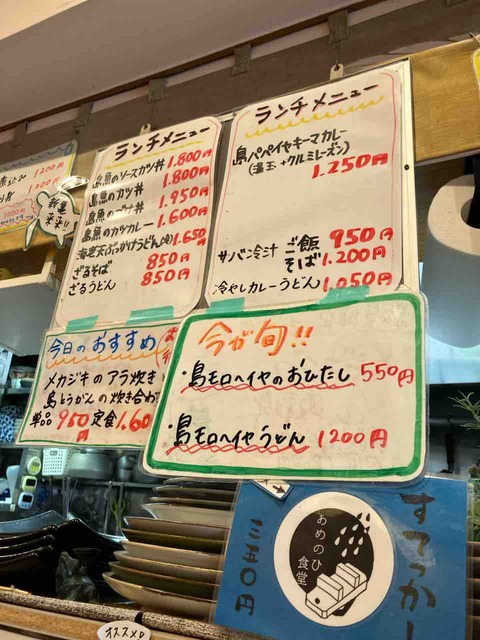 ランチメニュー
島魚のソースカツ丼 1.800円
島魚のカツ丼 1.800円
島魚の 丼 1.950円
島魚のカツカレー 1.600円
海老天ぶっかけうどん(冷) 1.650
ざるそば 850円
ざるうどん 850円
ランチメニュー
島パパイヤキーマカレー
(温玉+クルミレーズン)
1.250円
サバ冷汁 ご飯 950円
そば 1.200円
冷やしカレーうどん 1.050円
今日のおすすめ
メカジキのアラ炊き
島とうがんの炊き合わ
単品 950円 定食 1.60
今が旬!!
・島モロヘイヤのおひたし 550円
・島モロヘイヤうどん 1200円
1200円
新亀
来来!!
あめのひ
食堂
すてっかー
三五〇円
オススメ